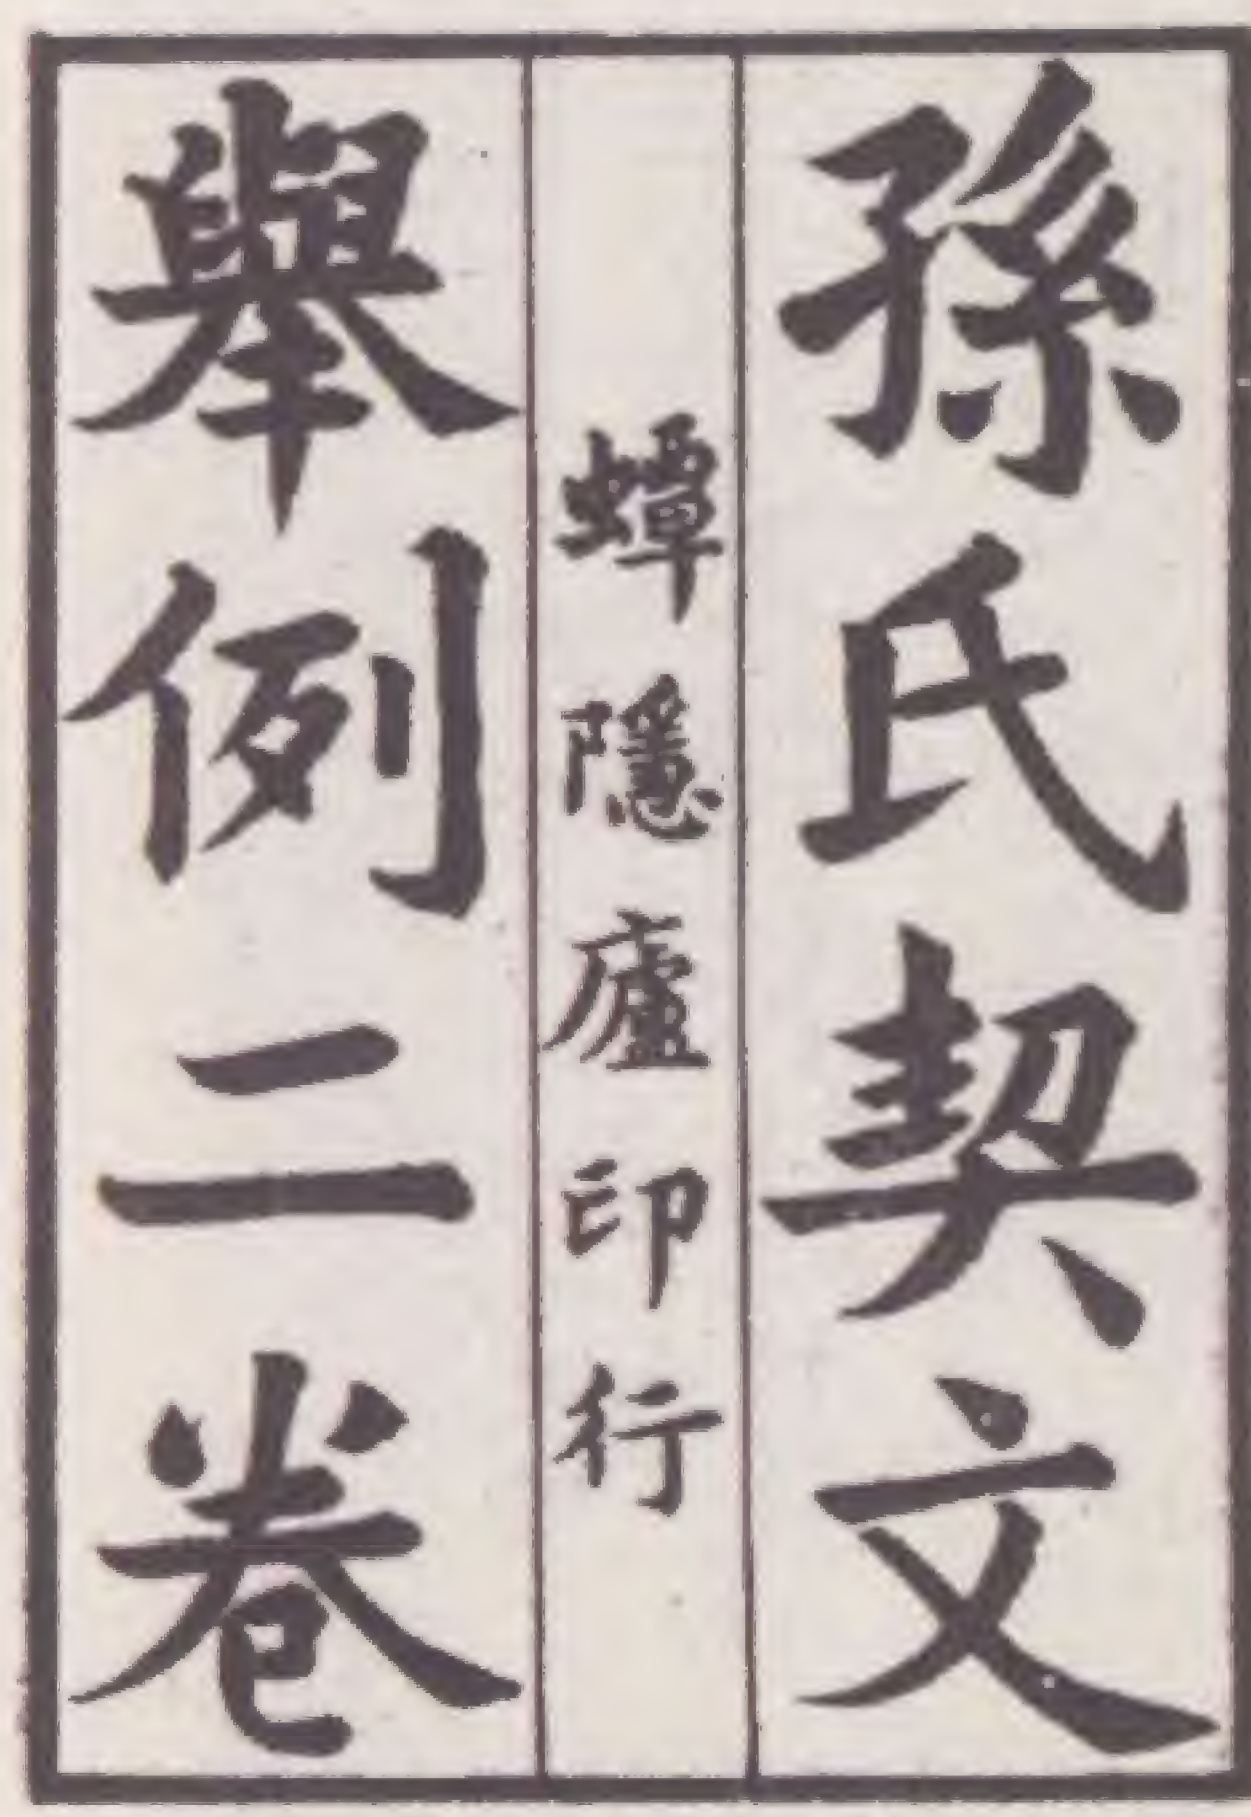 孫氏契文
蟫隱廬印行
舉例二卷